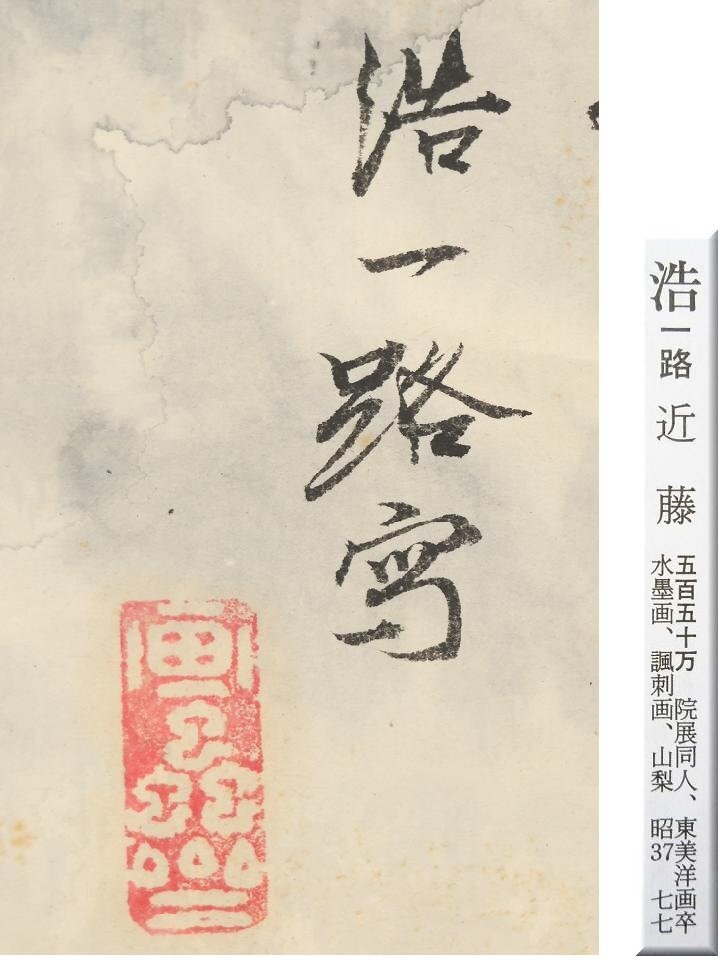 浩一路写
浩一路 近藤
五百五十万 院展同人、東美洋画卒
水墨画、諷刺画、山梨 昭37 七七